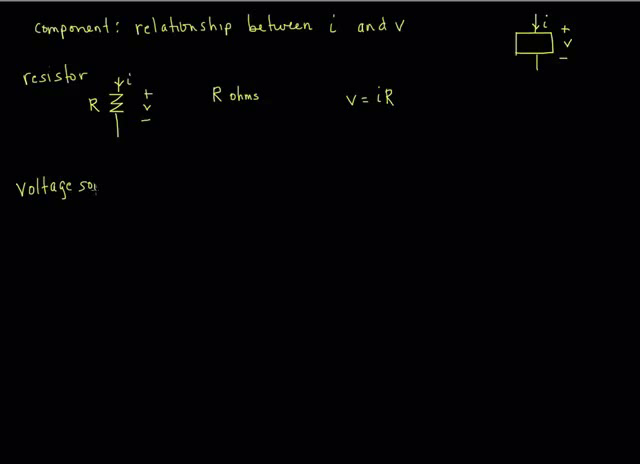 component: relationship between i and v
i
+
v
-
resistor
i
R
+
v
-
R ohms
v = iR
voltage sou